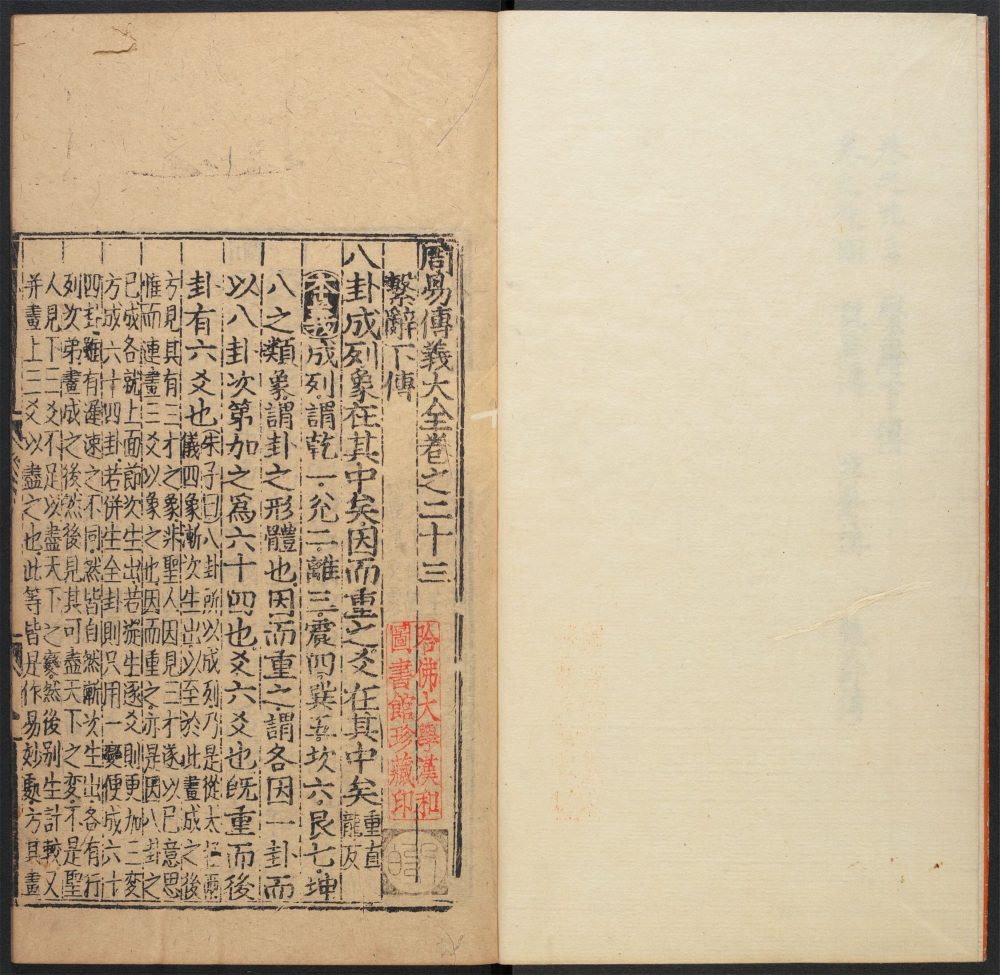 周易傳義大全卷之二十三
繫辭下傳
八卦成列象在其中矣因而重之爻在其中矣
重直
龍反
本義
成列謂乾一兌二離三震四巽五坎六艮七坤
八之類象謂卦之形體也因而重之謂各因一卦而
以八卦次第加之爲六十四也爻六爻也既重而後
卦有六爻也
朱子曰八卦所以成列乃是從太極兩
儀四象漸次生出以至於此畫成之後
方見其有三才之象非聖人因見三才遂以己意思
惟而連畫三爻以象之也因而重之亦是因八卦之
已成各就上面節次生出若旋生逐爻則更加三變
方成六十四卦若併生全卦則只用一變便成六十
四卦雖有遲速之不同然皆自然漸次生出各有行
列次第畫成之後然後見其可盡天下之變不是聖
人見下三爻不足以盡天下之變然後别生計較又
并畫上三爻以盡之也此等皆是作易妙處方其畫
哈佛大學漢和
圖書館珍藏印